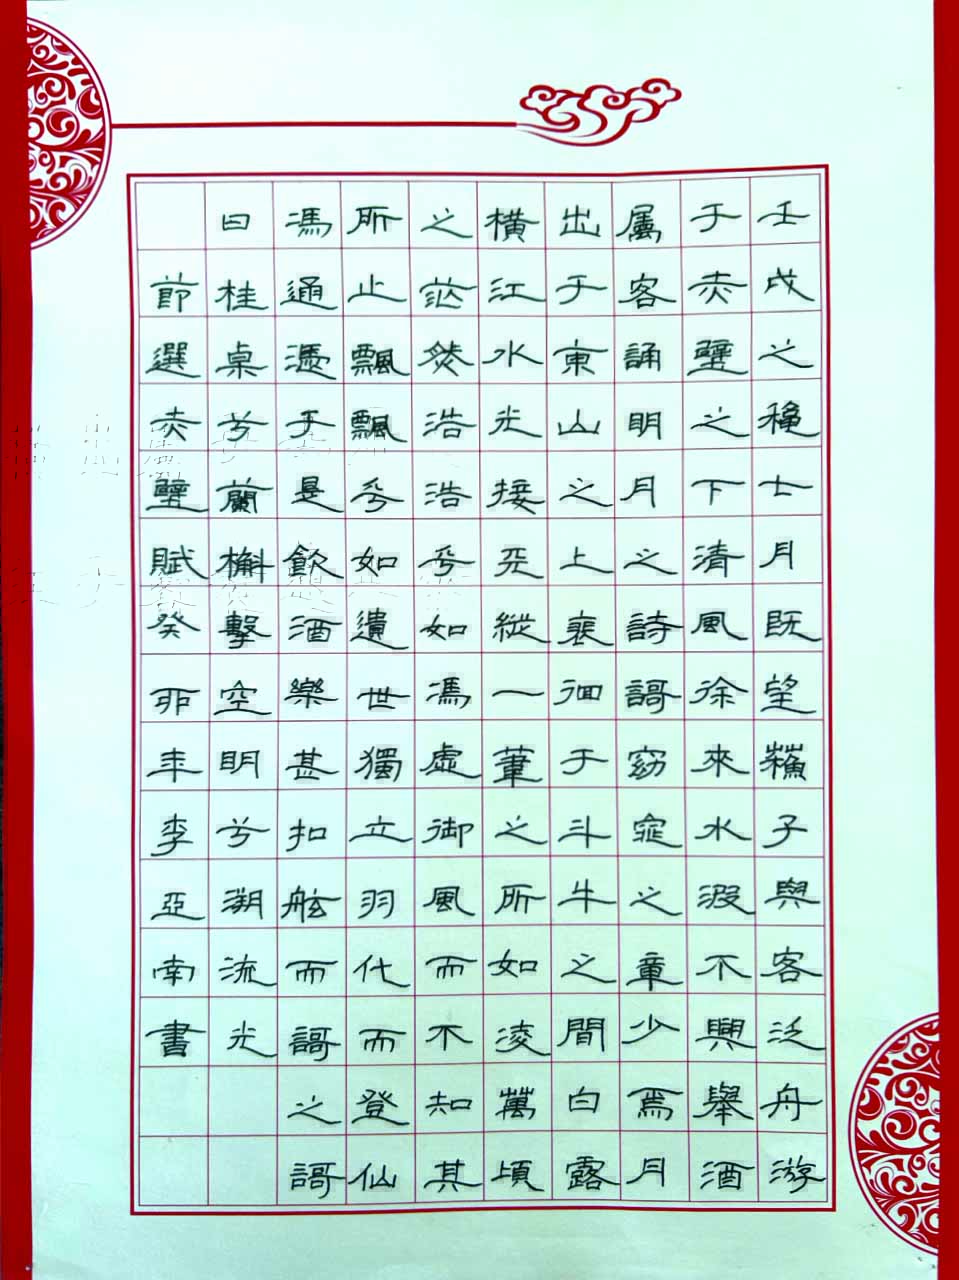 壬戌之穐七月既望蘓子與客泛舟游
于赤壁之下清風徐來水波不興舉酒
屬客誦明月之詩謌窈窕之章少焉月
出于東山之上裵徊于斗牛之間白露
橫江水光接天縱一葦之所如淩萬頃
之茫然浩浩乎如馮虛御風而不知其
所止飄飄乎如遺世獨立羽化而登仙
馮通憑于是飲酒樂甚扣舷而謌之謌
曰桂桌兮蘭槲擊空明兮溯流光
節選赤壁賦癸卯年李亞南書